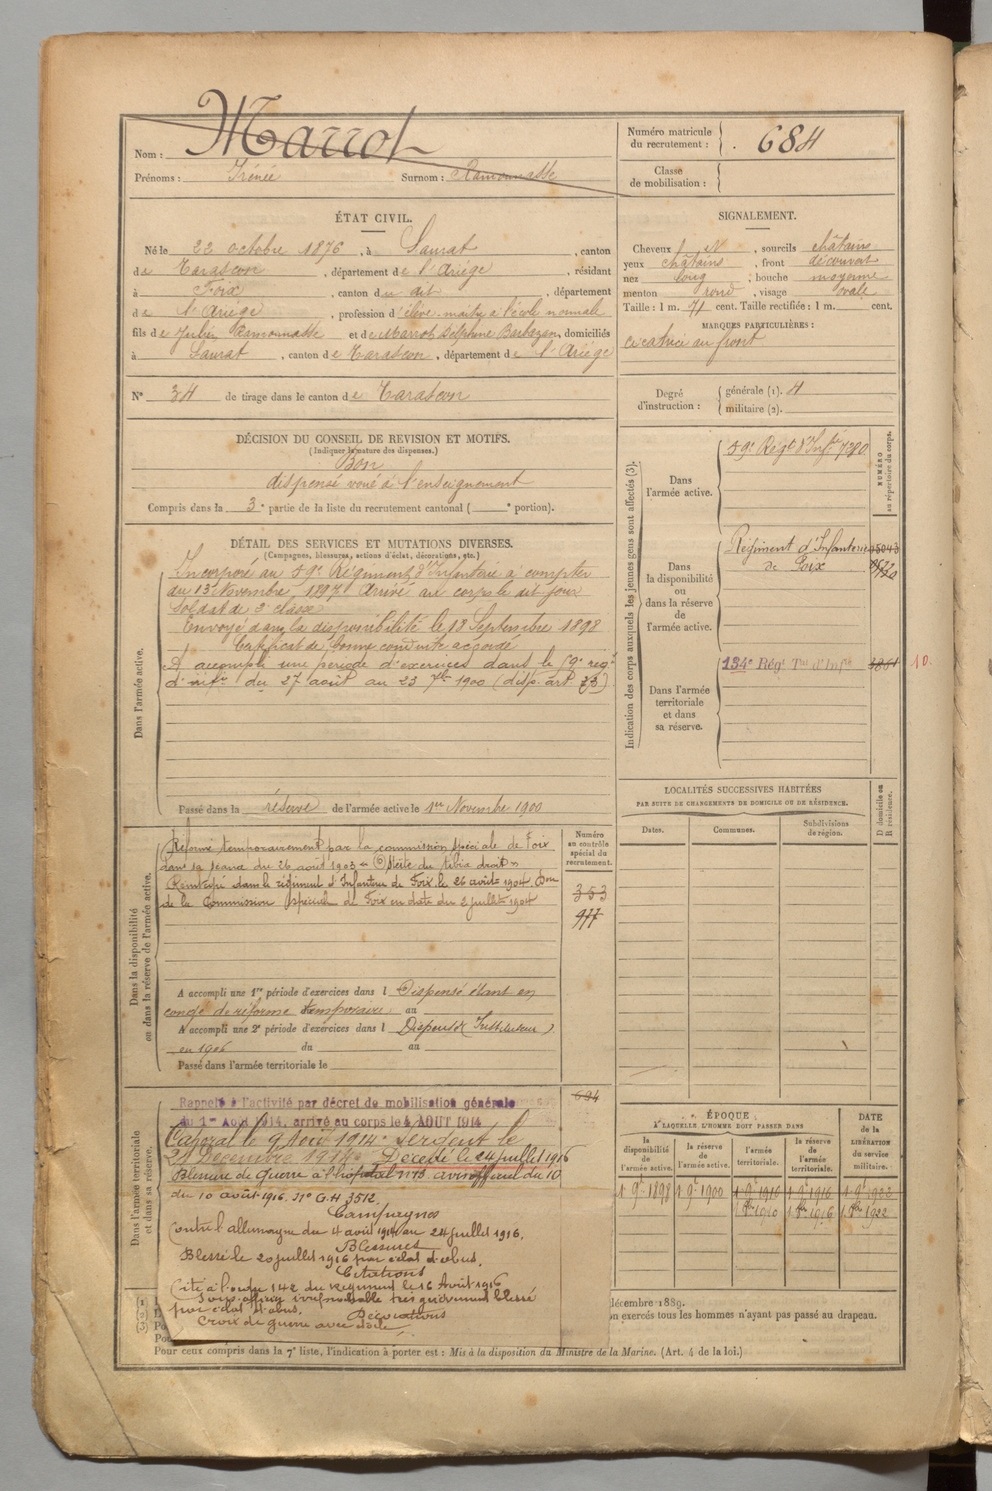 Nom : Marrot
Prénoms : Irénée Surnom : Ramounasse
Numéro matricule du recrutement : 684
Classe de mobilisation :
ÉTAT CIVIL.
Né le 22 octobre 1876, à Saurat, canton
de Tarascon, département de l'Ariège, résidant
à Foix, canton du dit, département
de l'Ariège, profession d'élève-maître à l'école normale
fils de Julien Ramounasse et de Marrot Delphine, domiciliés
à Saurat, canton de Tarascon, département de l'Ariège
N° 34 de tirage dans le canton de Tarascon
SIGNALEMENT.
Cheveux N, sourcils châtains
yeux châtains, front découvert
nez long, bouche moyenne
menton rond, visage ovale
Taille : 1 m. 71 cent. Taille rectifiée : 1 m. cent.
MARQUES PARTICULIÈRES :
cicatrice au front
Degré d'instruction : générale (1). 4
militaire (2).
DÉCISION DU CONSEIL DE REVISION ET MOTIFS.
(Indiquer la nature des dispenses.)
Bon
dispensé voué à l'enseignement
Compris dans la 3e partie de la liste du recrutement cantonal ( e portion).
DÉTAIL DES SERVICES ET MUTATIONS DIVERSES.
(Campagnes, blessures, actions d'éclat, décorations, etc.)
Dans l'armée active.
Incorporé au 59e Régiment d'Infanterie à compter
du 13 Novembre 1897. Arrivé au corps le dit jour
Soldat de 2e classe
Envoyé dans la disponibilité le 18 Septembre 1898
Certificat de bonne conduite accordé
A accompli une période d'exercices dans le 59e régt
d'infie du 27 août au 23 7bre 1900 (disp. art 23)
Passé dans la réserve de l'armée active le 1er Novembre 1900
Indication des corps auxquels les jeunes gens sont affectés (3).
NUMÉRO au répertoire du corps.
Dans l'armée active.
59e Régt d'Infie 7380
Dans la disponibilité ou dans la réserve de l'armée active.
Régiment d'Infanterie
de Foix
Dans l'armée territoriale et dans sa réserve.
134e Régt Tal d'Infie
10.
LOCALITÉS SUCCESSIVES HABITÉES
PAR SUITE DE CHANGEMENTS DE DOMICILE OU DE RÉSIDENCE.
Dates. Communes. Subdivisions de région. D domicile ou R résidence.
Dans la disponibilité ou dans la réserve de l'armée active.
Numéro au contrôle spécial du recrutement.
Réformé temporairement par la commission spéciale de Foix
dans sa séance du 26 août 1903 « Ostéite du tibia droit »
Remplacé dans le régiment d'Infanterie de Foix le 26 août 1904. Don
de la Commission spéciale de Foix en date du 2 juillet 1904
353
977
A accompli une 1re période d'exercices dans l Dispensé étant en
congé de réforme temporaire au
A accompli une 2e période d'exercices dans l Dispensé (Instituteur)
en 1906 du au
Passé dans l'armée territoriale le
Dans l'armée territoriale et dans sa réserve.
694
Rappelé à l'activité par décret de mobilisation générale
du 1er Aout 1914, arrivé au corps le 4 AOUT 1914
Caporal le 9 Août 1914. Sergent le
21 Décembre 1914. Décédé le 24 juillet 1916
Blessure de Guerre à l'hôpital n°13 avis officiel du 10
du 10 août 1916. N° G.H 3512.
Campagnes
contre l'allemagne du 4 août 1914 au 24 juillet 1916.
Blessures
Blessé le 20 juillet 1916 par éclat d'obus.
Citations
Cité à l'ordre 142 du régiment le 16 Août 1916
Sous-officier irréprochable très grièvement blessé
par éclat d'obus.
Décorations
Croix de guerre avec étoile
ÉPOQUE
À LAQUELLE L'HOMME DOIT PASSER DANS
la disponibilité de l'armée active. la réserve de l'armée active. l'armée territoriale. la réserve de l'armée territoriale.
DATE de la LIBÉRATION du service militaire.
1 9e 1898 1 9e 1900 1 9e 1910 1 9e 1916 1 9e 1922
1 8bre 1910 1 8bre 1916 1 8bre 1922
décembre 1889.
on exercés tous les hommes n'ayant pas passé au drapeau.
Pour ceux compris dans la 7e liste, l'indication à porter est : Mis à la disposition du Ministre de la Marine. (Art. 4 de la loi.)